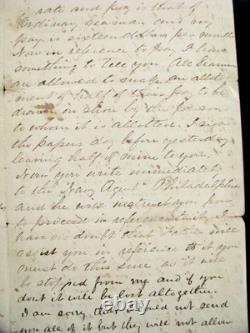 rate and pay is that of
Ordinary Seaman and my
pay is sixteen dollars per month
Now in reference to pay I have
something to tell you All Seamen
are allowed to make an allot
ment of half of their pay to be
drawn on shore by the person
to whom it is allotted. I signed
the papers day before yesterday
leaving half of mine to you.
Now you write immediately
to the "Navy Agent" Philadelphia
and he will instruct you how
to proceed in
have no doubt that will
assist you in reference to it you
must do this sure, as it will
be stopped from me and if you
dont it will be lost altogether.
I am sorry that I could not send
you all of it but they will not allow